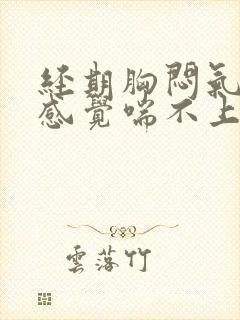 經期胸悶氣
感覺喘不上
雲落竹